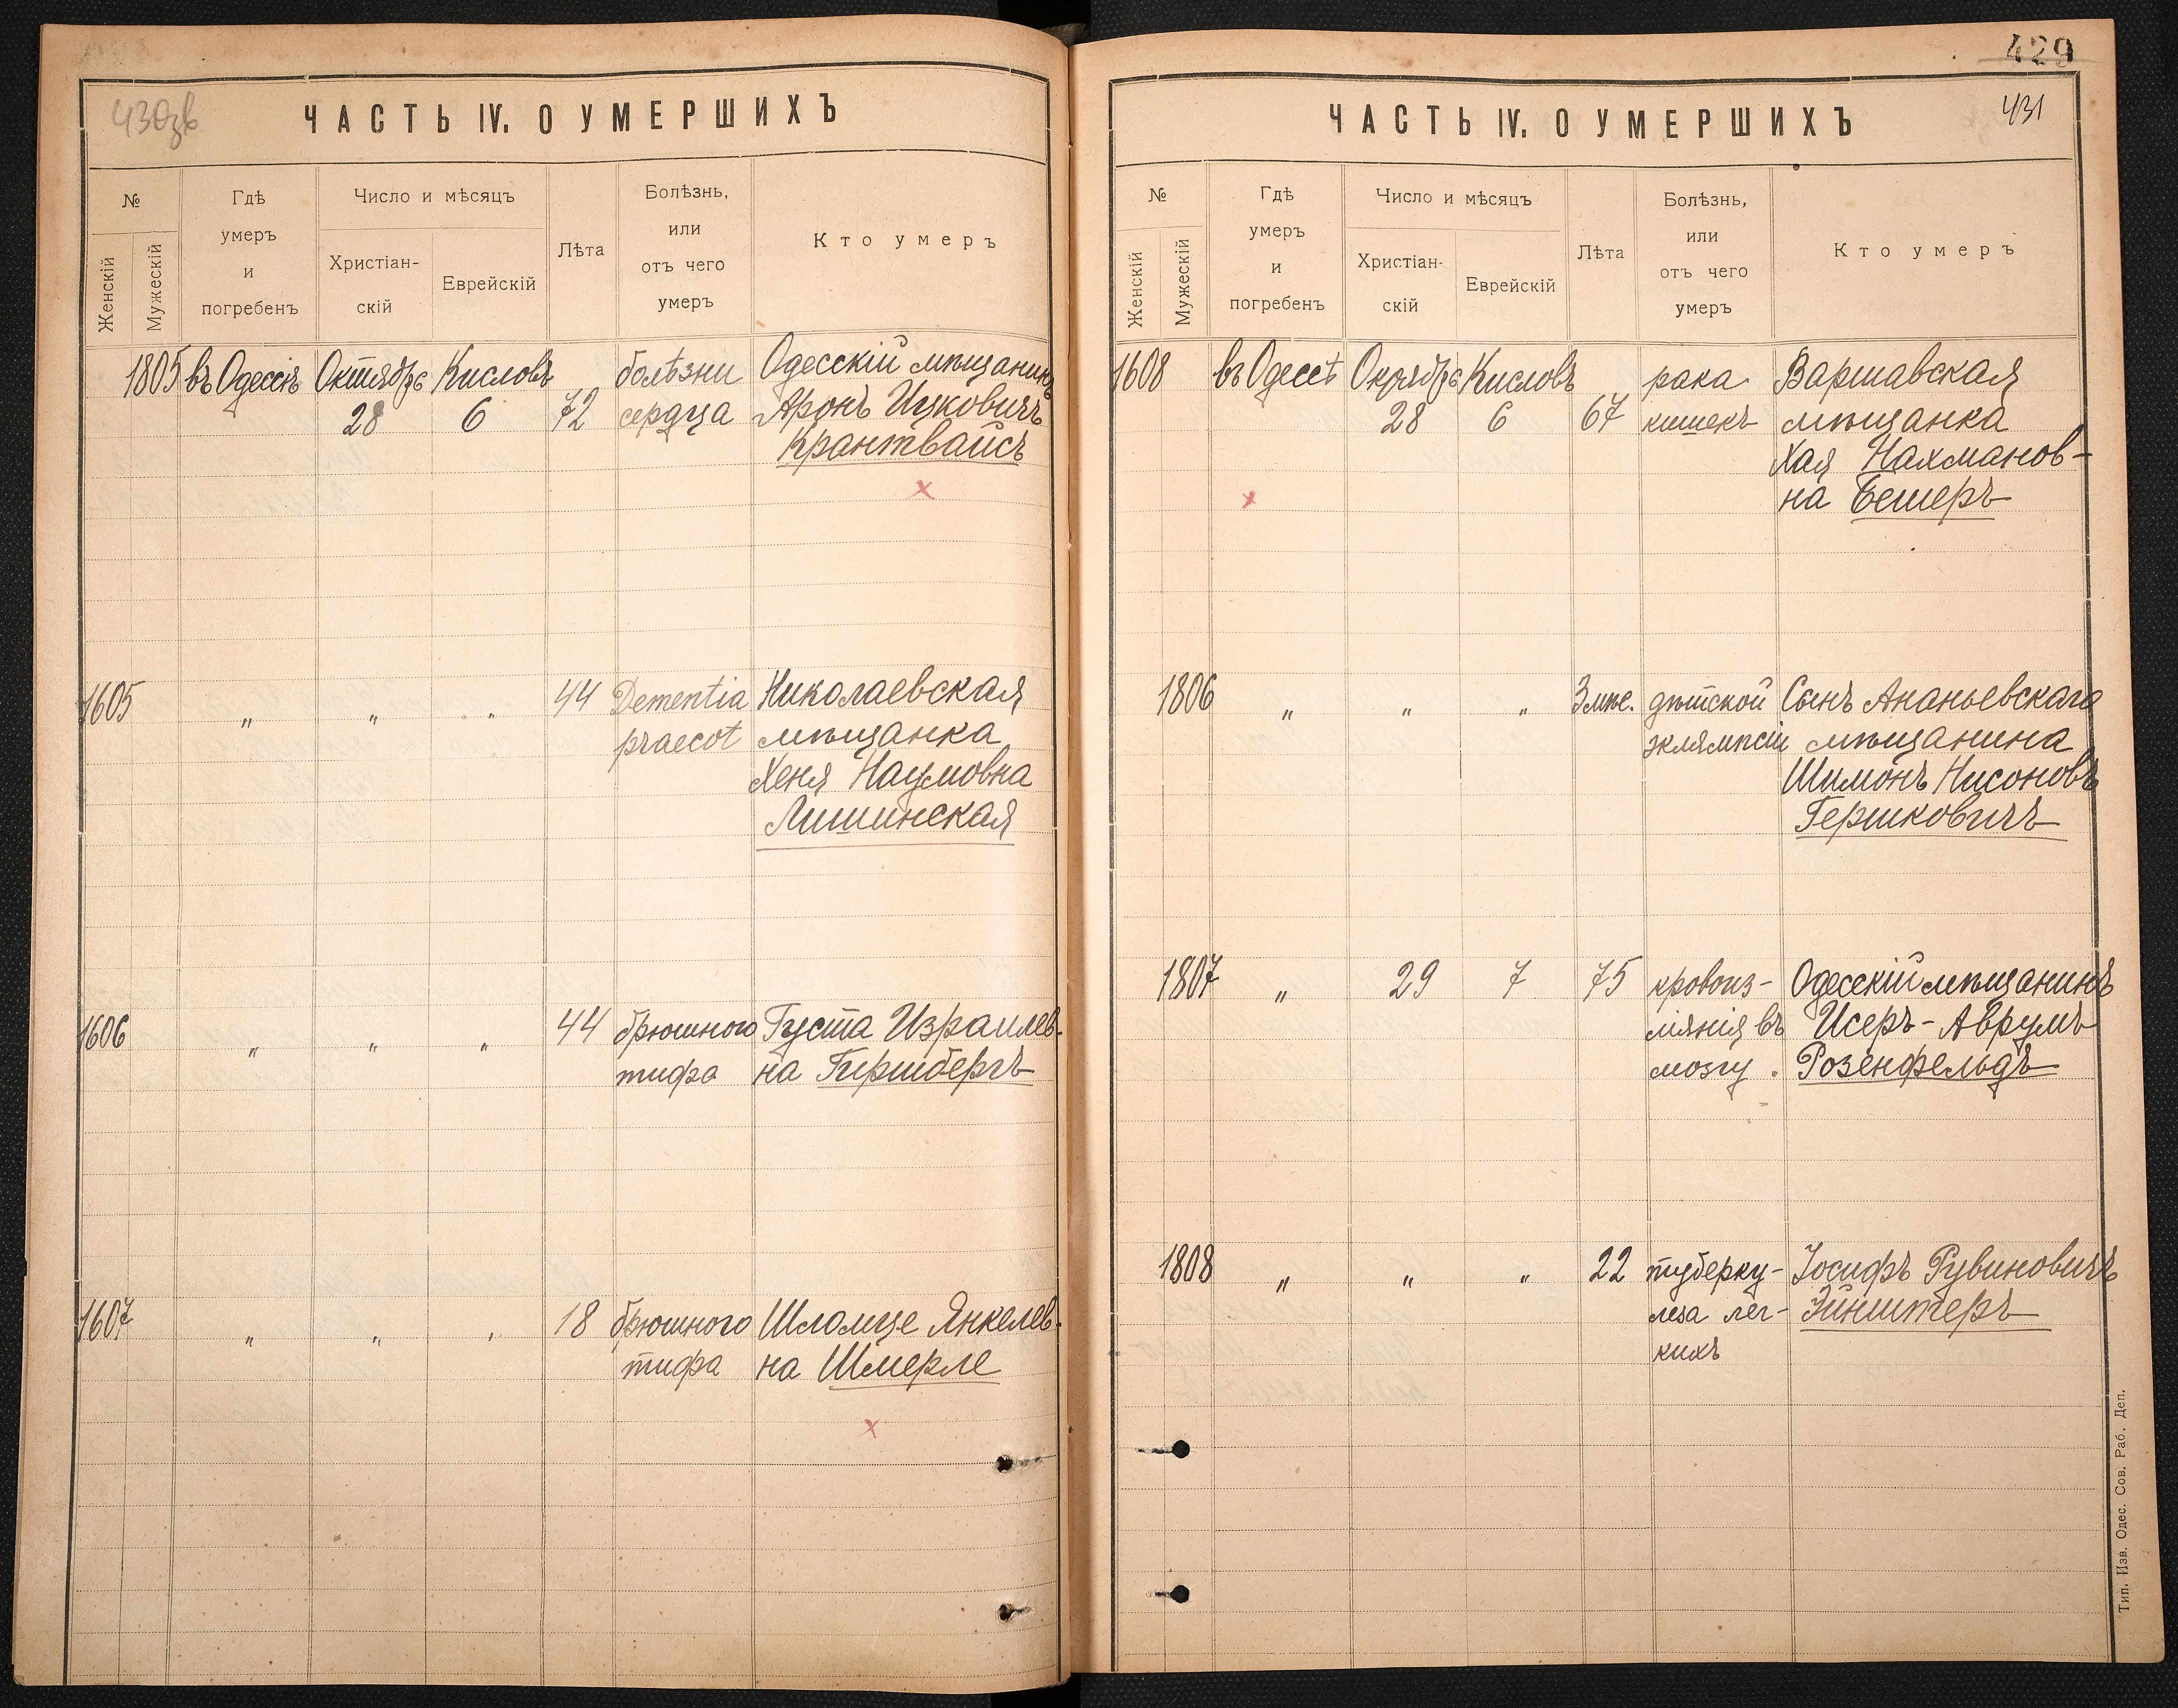 430зв
ЧАСТЬ IV. О УМЕРШИХЪ
№
Женскій
Мужескій
Гдѣ
умеръ
и
погребенъ
Число и мѣсяцъ
Христіан-
скій
Еврейскій
Лѣта
Болѣзнь,
или
отъ чего
умеръ
Кто умеръ
1805 въ Одессѣ Октября Кисловъ болѣзни Одесскій мѣщанинъ
28 6 72 сердца Аронъ Ицковичъ
Крантвайсъ
x
1605 „ „ „ 44 Dementia Николаевская
praecot мѣщанка
Хеня Наумовна
Лишинская
1606 „ „ „ 44 брюшного Густа Израилев-
тифа на Гиршбергъ
1607 „ „ „ 18 брюшного Шломце Янкелев-
тифа на Шмерле
x
429
431
ЧАСТЬ IV. О УМЕРШИХЪ
№
Женскій
Мужескій
Гдѣ
умеръ
и
погребенъ
Число и мѣсяцъ
Христіан-
скій
Еврейскій
Лѣта
Болѣзнь,
или
отъ чего
умеръ
Кто умеръ
1608 въ Одессѣ Октября Кисловъ рака Варшавская
28 6 67 кишекъ мѣщанка
Хая Нахманов-
x на Бешеръ
1806 „ „ „ 3 мѣс. дѣтской Сынъ Ананьевскаго
эклямпсіи мѣщанина
Шимонъ Нисоновъ
Гершковичъ
1807 „ 29 7 75 кровоиз- Одесскій мѣщанинъ
ліянія въ Исеръ-Аврумъ
мозгу. Розенфельдъ
1808 „ „ „ 22 туберку- Іосифъ Рувиновичъ
леза лег- Эйнштеръ
кихъ
Тип. Изв. Одес. Сов. Раб. Деп.